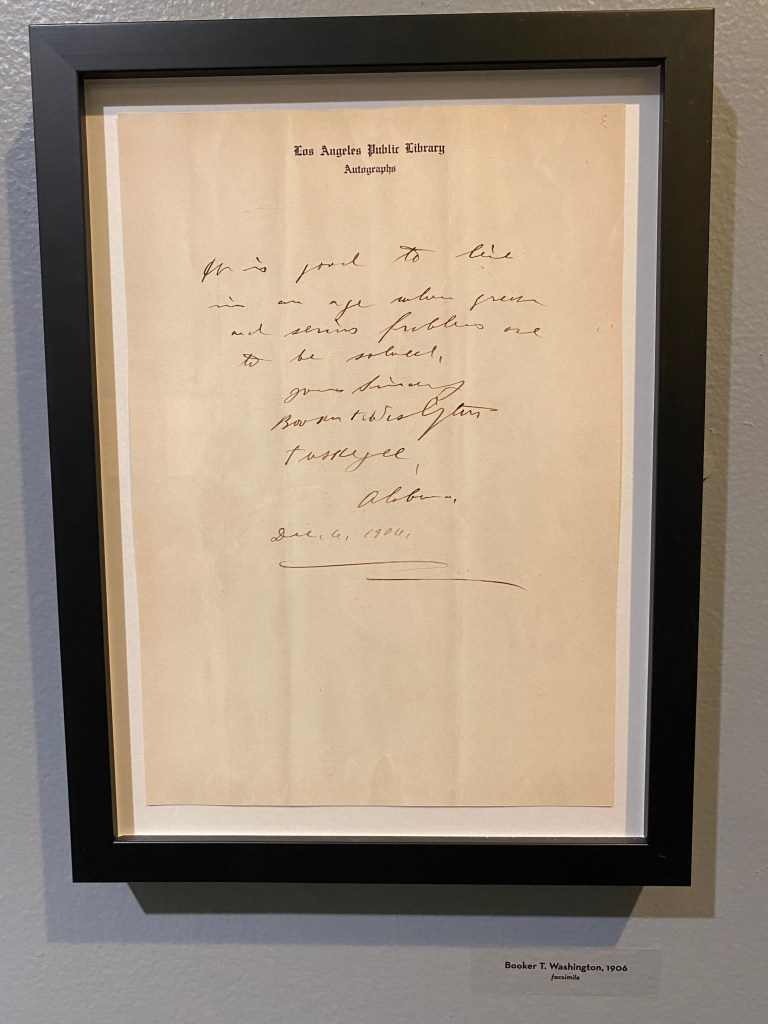 Los Angeles Public Library
Autographs
It is good to live
in an age when great
and serious problems are
to be solved.
Yours Sincerely
Booker T. Washington
Tuskegee,
Alabama.
Dec. 6, 1906.
Booker T. Washington, 1906
facsimile